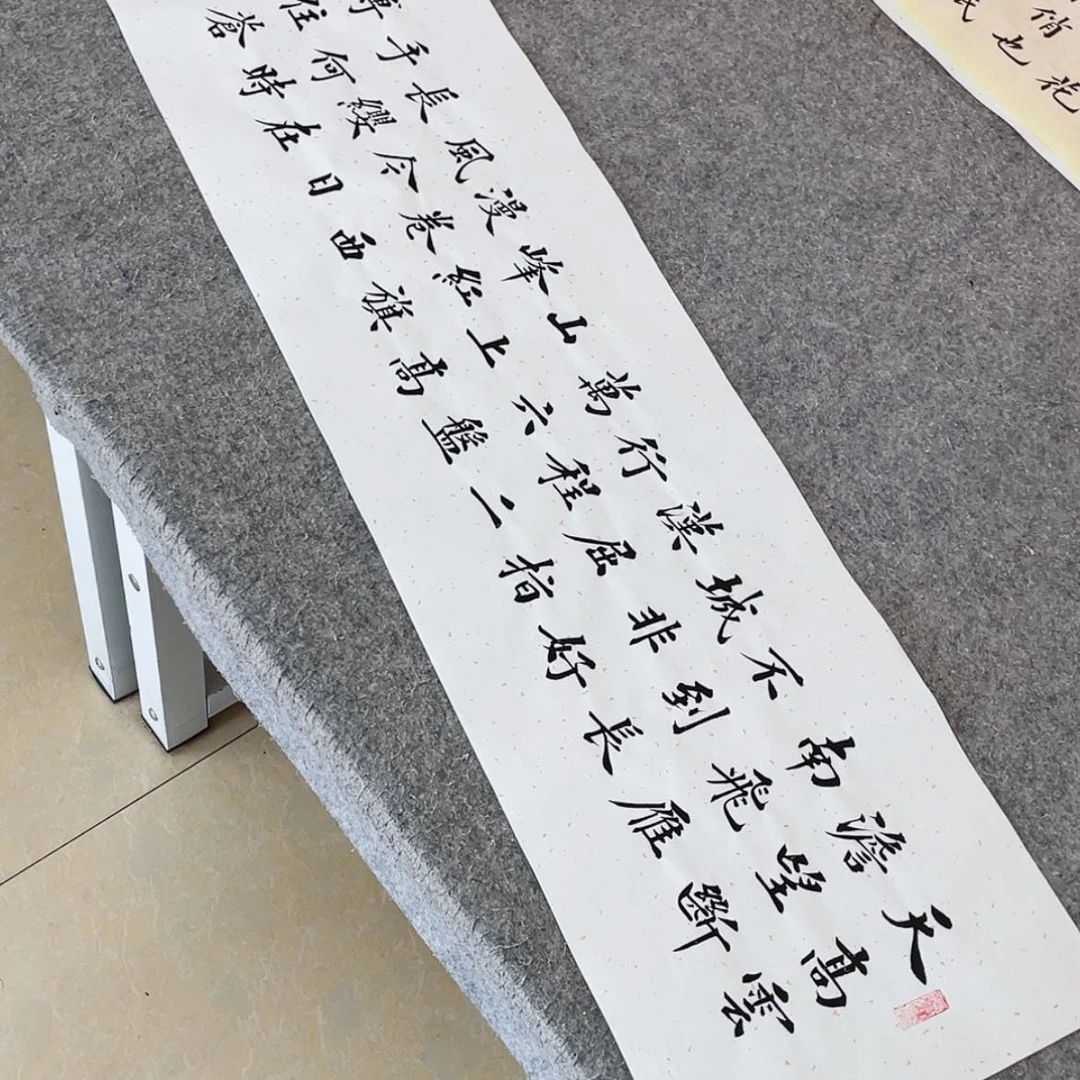 天高雲
澹望斷
南飛雁
不到長
城非好
漢屈指
行程二
萬六盤
山上高
峰紅旗
漫卷西
風今日
長纓在
手何時
縛住蒼
花
俏也